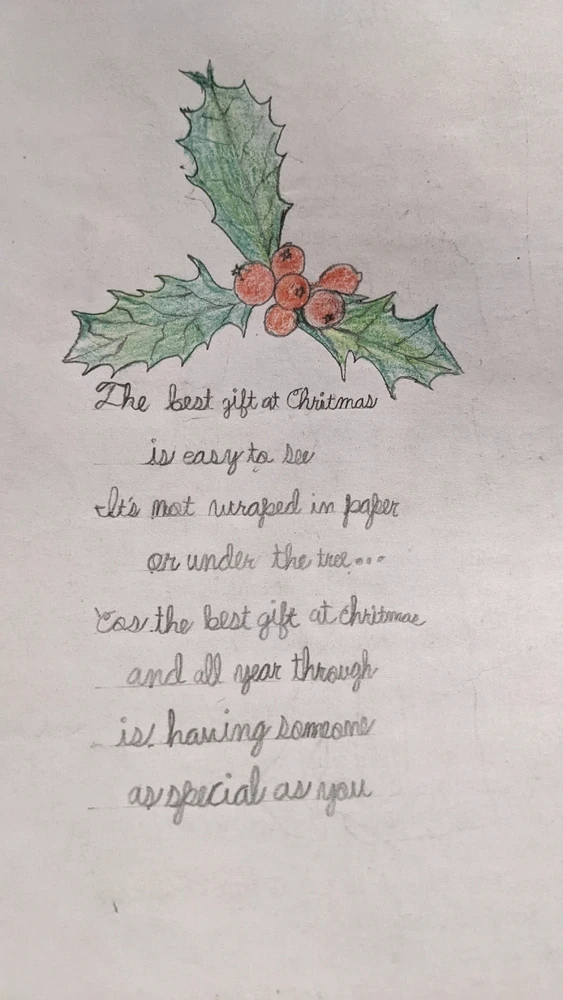 The best gift at Chritmas
is easy to see
It's not wraped in paper
or under the tree...
'Cos the best gift at chritmas
and all year through
is having someone
as special as you